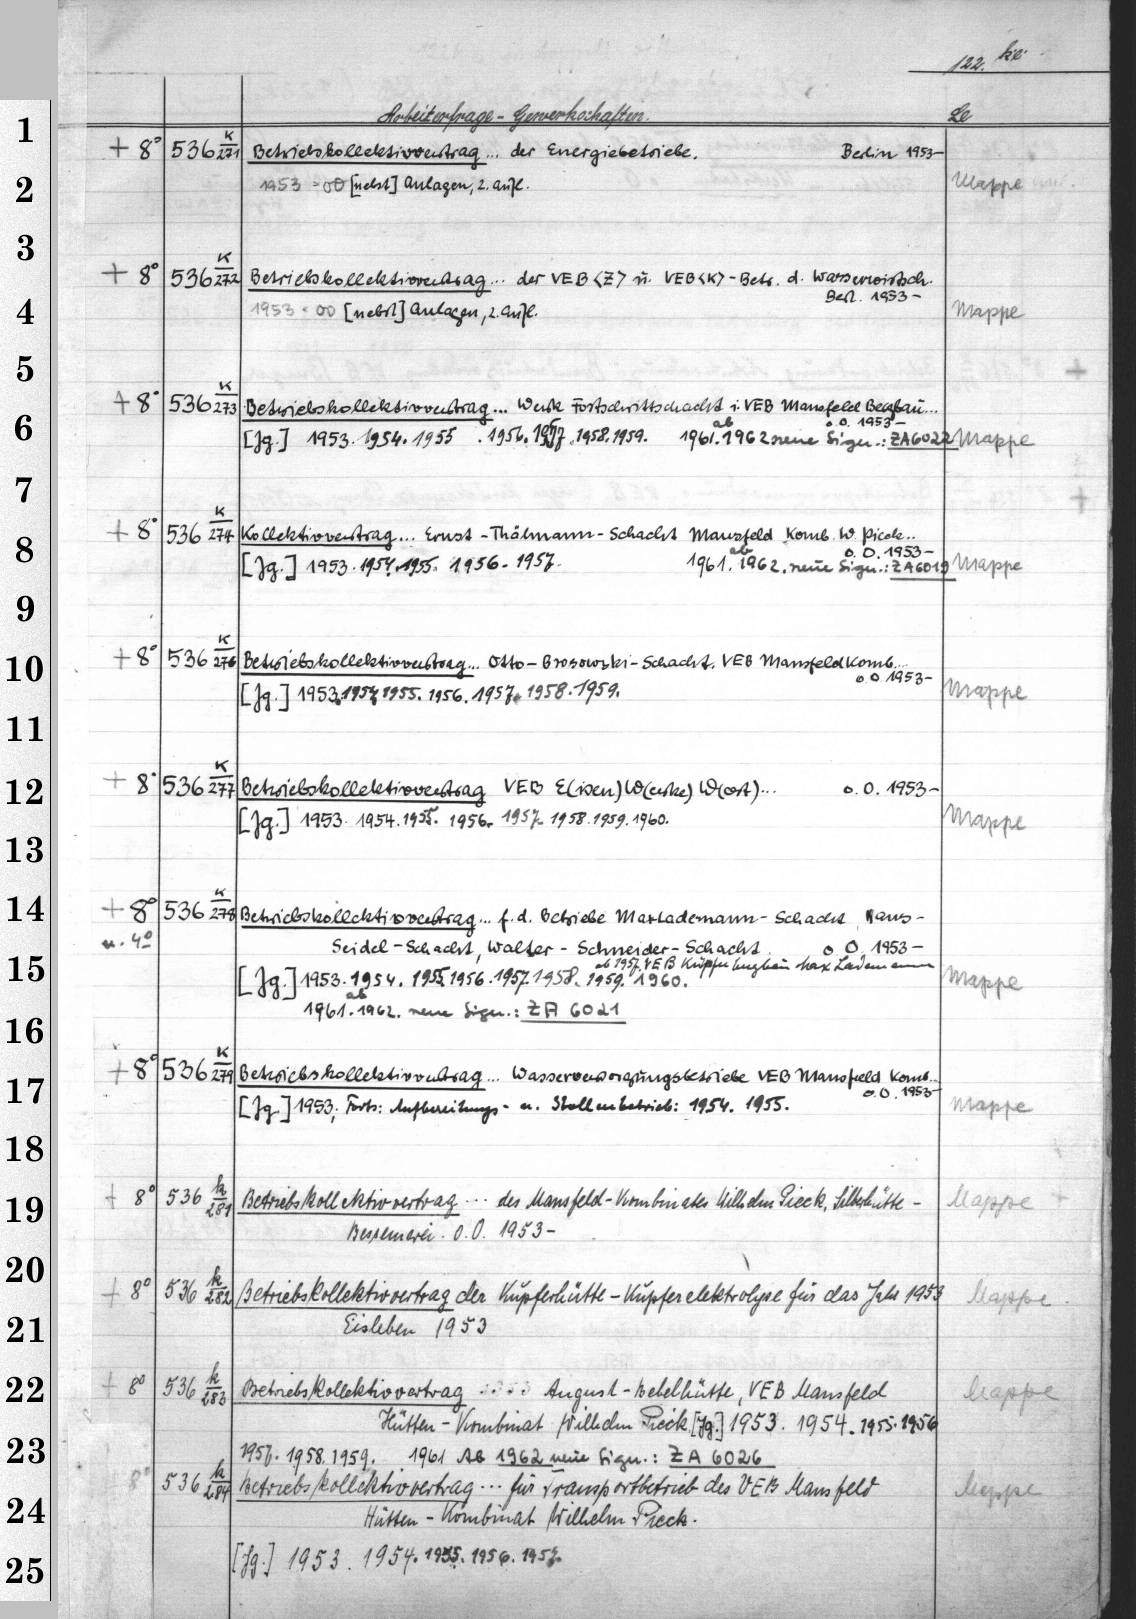 122. ke
Arbeiterfrage - Gewerkschaften. Le
1 + 8° 536 K/271 Betriebskollektivvertrag... der Energiebetriebe. Berlin 1953-
2 1953 - oO [nebst] Anlagen, 2. Aufl. Mappe
3 + 8° 536 K/272 Betriebskollektivvertrag... der VEB <Z> u. VEB <K> - Betr. d. Wasserwirtsch.
Berl. 1953-
4 1953 - oO [nebst] Anlagen, 2. Aufl. Mappe
5 +
+ 8° 536 K/273 Betriebskollektivvertrag... Werk Fortschrittschacht i. VEB Mansfeld Bergbau...
o.O. 1953-
6 [Jg.] 1953. 1954. 1955. 1956. 1957. 1958. 1959. 1961. ab 1962 neue Sign.: ZA 6022 Mappe
7 +
+ 8° 536 K/274 Kollektivvertrag... Ernst-Thälmann-Schacht Mansfeld Komb. W. Pieck..
8 o.O. 1953-
[Jg.] 1953. 1954. 1955. 1956. 1957. 1961. ab 1962. neue Sign.: ZA 6019 Mappe
9
10 + 8° 536 K/276 Betriebskollektivvertrag... Otto-Brosowski-Schacht. VEB Mansfeld Komb...
o.O. 1953-
[Jg.] 1953. 1954. 1955. 1956. 1957. 1958. 1959. Mappe
11
12 + 8° 536 K/277 Betriebskollektivvertrag VEB E(isen)W(erke) W(est)... o.O. 1953-
[Jg.] 1953. 1954. 1955. 1956. 1957. 1958. 1959. 1960. Mappe
13
14 + 8° 536 K/278 Betriebskollektivvertrag... f.d. Betriebe Max Lademann-Schacht, Hans-
u. 4° Seidel-Schacht, Walter-Schneider-Schacht. o.O. 1953-
ab 1957 VEB Kupferbergbau Max Lademann
15 [Jg.] 1953. 1954. 1955. 1956. 1957. 1958. 1959. 1960. Mappe
1961. ab 1962. neue Sign.: ZA 6021
16
+ 8° 536 K/279 Betriebskollektivvertrag... Wasserversorgungsbetriebe VEB Mansfeld Komb...
17 o.O. 1953-
[Jg.] 1953; Forts: Aufbereitungs- u. Stollenbetrieb: 1954. 1955. Mappe
18
19 + 8° 536 k/281 Betriebskollektivvertrag ... des Mansfeld-Kombinates Wilhelm Pieck, Silberhütte - Mappe
Bessemerei. o.O. 1953-
20 + 8° 536 k/282 Betriebskollektivvertrag der Kupferhütte - Kupferelektrolyse für das Jahr 1953 Mappe
21 Eisleben 1953
22 + 8° 536 k/283 Betriebskollektivvertrag August-Bebelhütte, VEB Mansfeld Mappe
Hütten-Kombinat Wilhelm Pieck. [Jg.] 1953. 1954. 1955. 1956
23 1957. 1958. 1959. 1961 Ab 1962 neue Sign.: ZA 6026
8° 536 k/284 Betriebskollektivvertrag ... für Transportbetrieb des VEB Mansfeld Mappe
24 Hütten-Kombinat Wilhelm Pieck.
25 [Jg.] 1953. 1954. 1955. 1956. 1957.